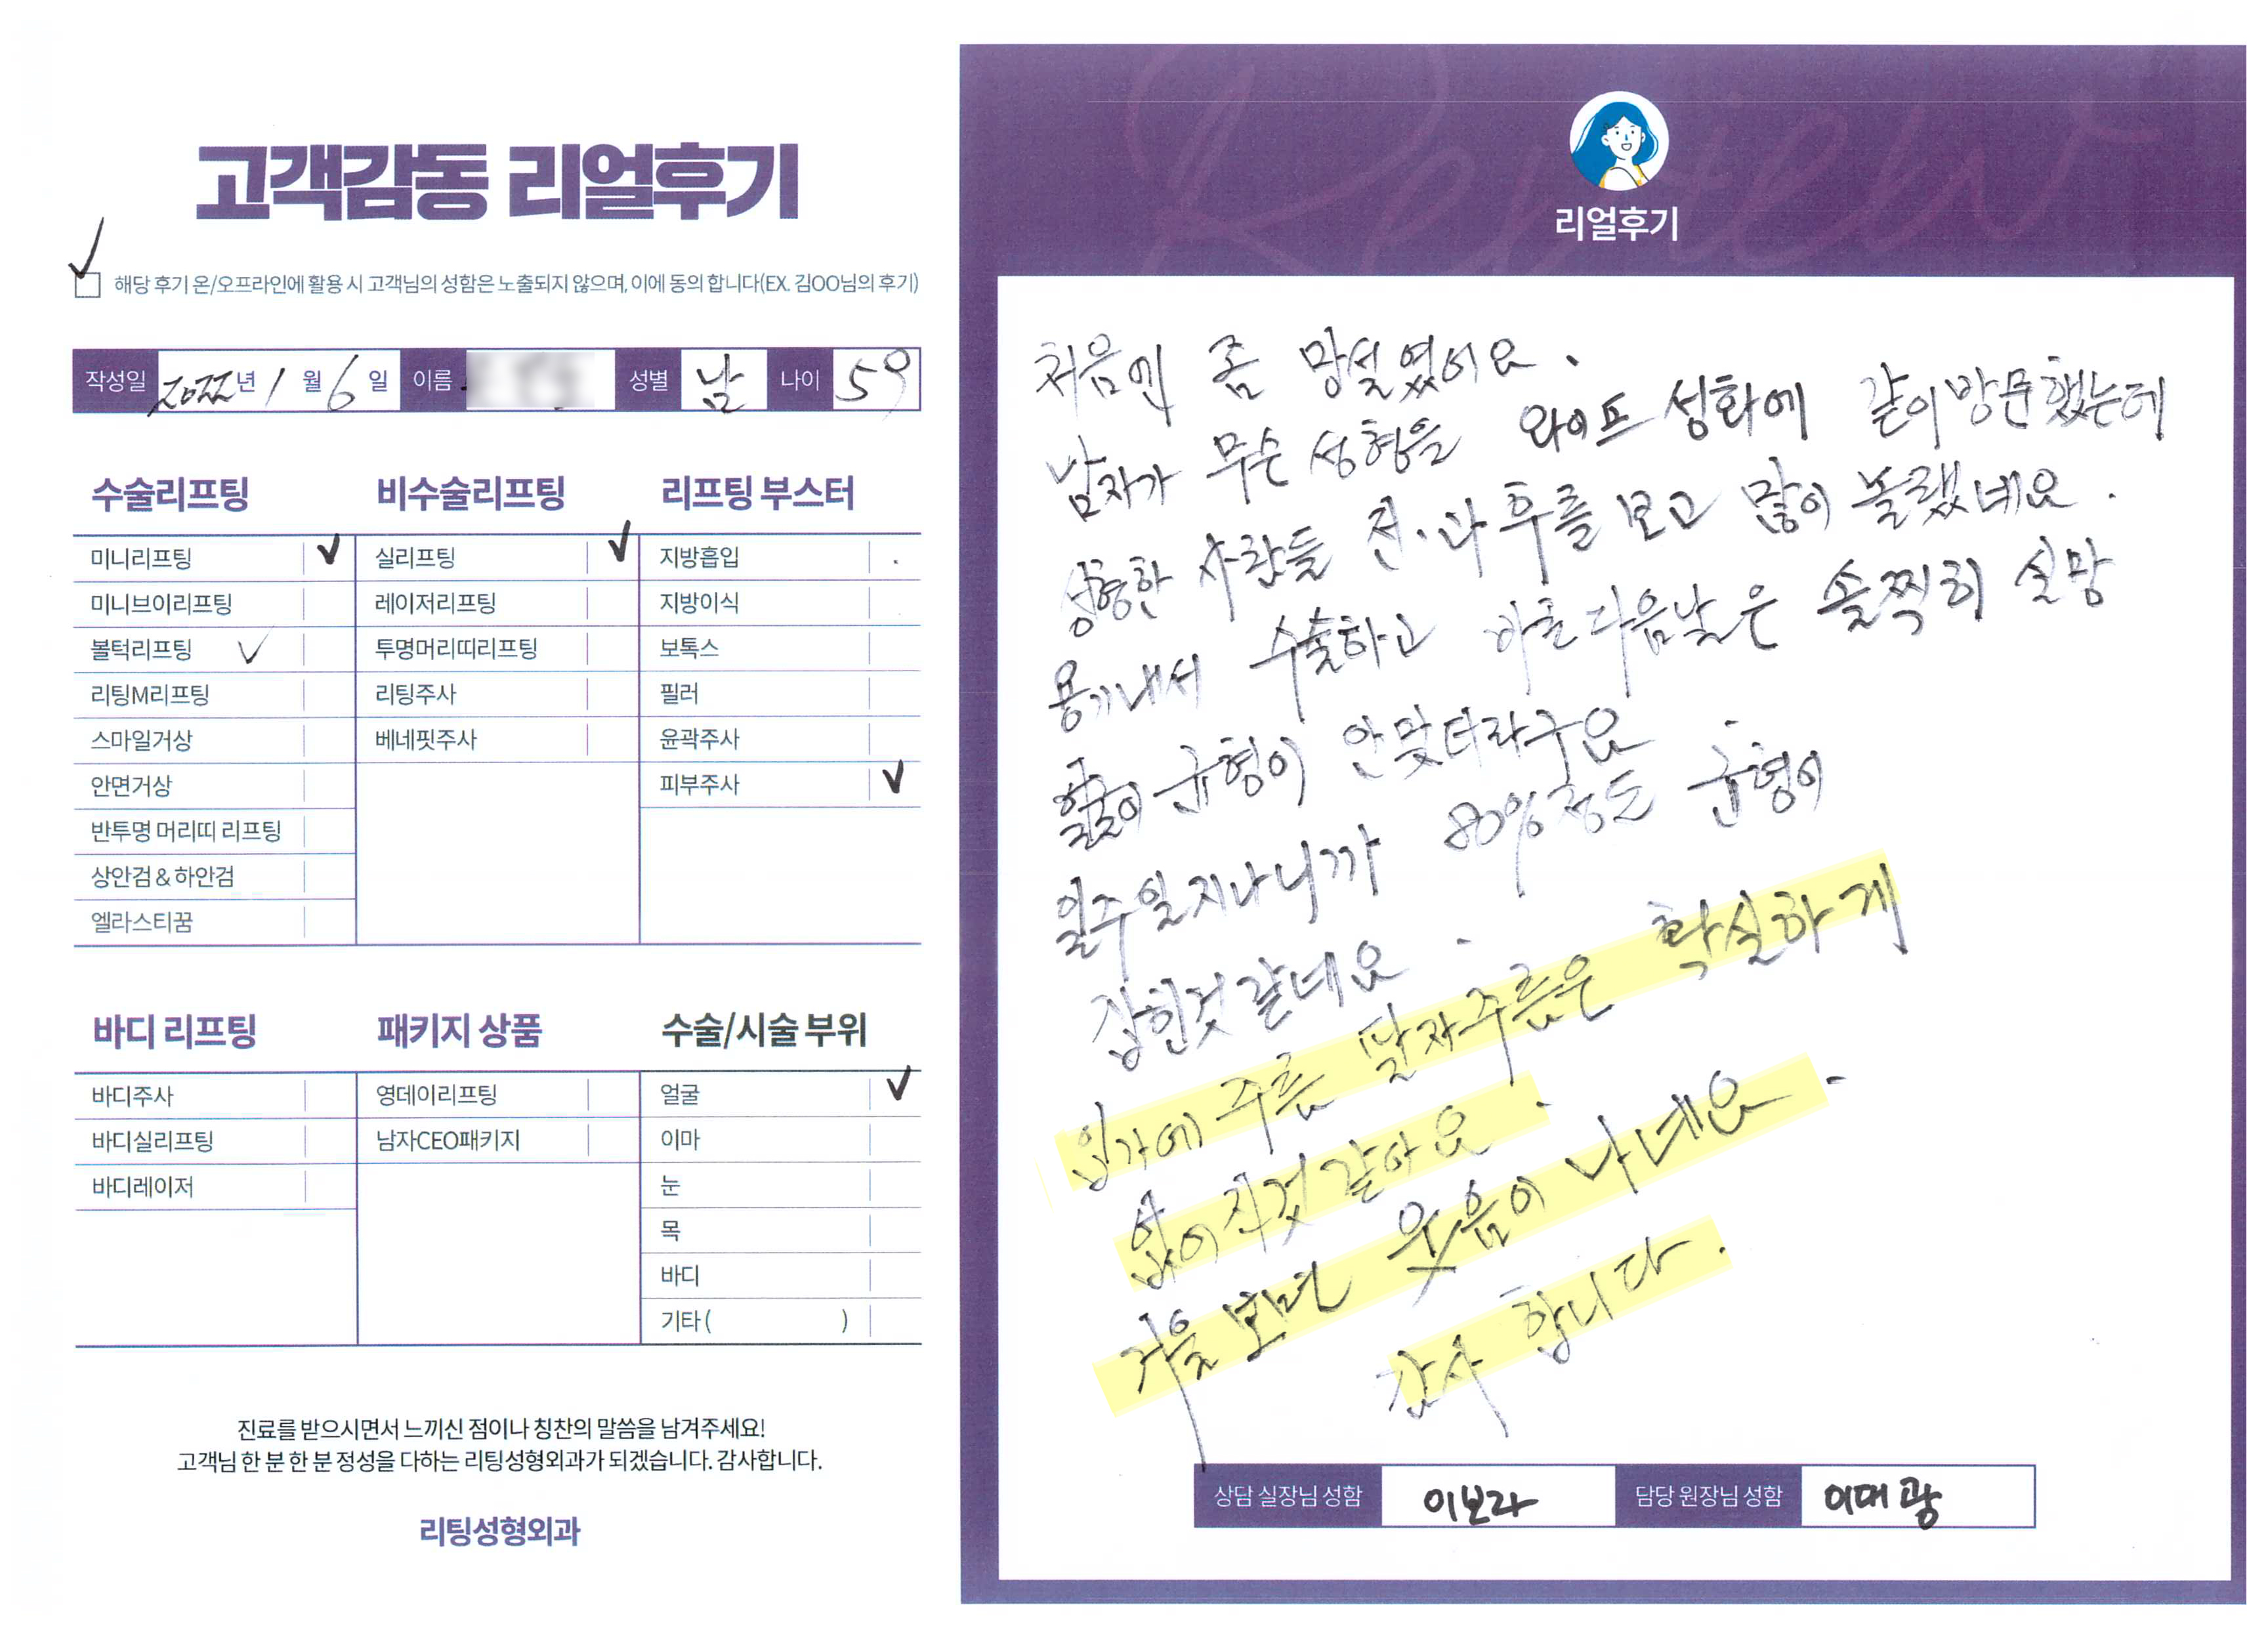 고객감동 리얼후기
해당 후기 온/오프라인에 활용 시 고객님의 성함은 노출되지 않으며, 이에 동의 합니다(EX. 김OO님의 후기)
작성일 2022년 1월 6일 이름 성별 남 나이 59
수술리프팅
미니리프팅
미니브이리프팅
볼턱리프팅
리팅M리프팅
스마일거상
안면거상
반투명 머리띠 리프팅
상안검 & 하안검
엘라스티꿈
비수술리프팅
실리프팅
레이저리프팅
투명머리띠리프팅
리팅주사
베네핏주사
리프팅 부스터
지방흡입
지방이식
보톡스
필러
윤곽주사
피부주사
바디 리프팅
바디주사
바디실리프팅
바디레이저
패키지 상품
영데이리프팅
남자CEO패키지
수술/시술 부위
얼굴
이마
눈
목
바디
기타 ( )
진료를 받으시면서 느끼신 점이나 칭찬의 말씀을 남겨주세요!
고객님 한 분 한 분 정성을 다하는 리팅성형외과가 되겠습니다. 감사합니다.
리팅성형외과
Review
리얼후기
처음엔 좀 망설였어요.
남자가 무슨 성형을 와이프 성화에 같이 방문했는데
성형한 사람들 전·과 후를 보고 많이 놀랬네요.
용기내서 수술하고 바로 다음날은 솔찍히 실망
얼굴이 균형이 안맞더라구요
일주일 지나니까 80%정도 균형이
잡힌것 같네요.
입가에 주름 팔자주름은 확실하게
없어진것 같아요.
거울 보면 웃음이 나네요.
감사 합니다.
상담 실장님 성함 이보라 담당 원장님 성함 이대광